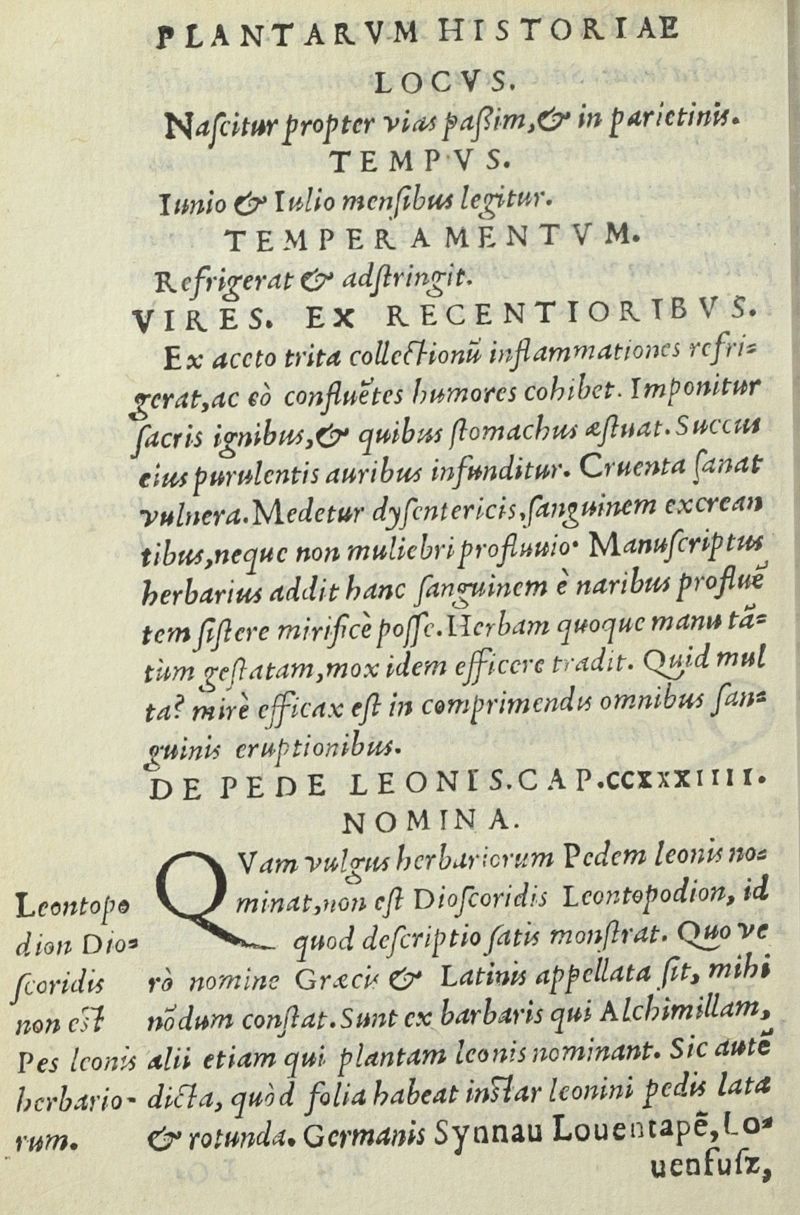 PLANTARVM HISTORIAE
LOCVS.
Naſcitur propter vias paſſim,& in parietinis.
TEMPVS.
Iunio & Iulio menſibus legitur.
TEMPERAMENTVM.
Refrigerat & adſtringit.
VIRES. EX RECENTIORIBVS.
Ex aceto trita collectionũ inflammationes refri⸗
gerat,ac eò confluẽtes humores cohibet. Imponitur
ſacris ignibus,& quibus ſtomachus æſtuat. Succus
eius purulentis auribus infunditur. Cruenta ſanat
vulnera. Medetur dyſentericis,ſanguinem excrean
tibus,neque non muliebri profluuio. Manuſcriptus
herbarius addit hanc ſanguinem è naribus profluẽ
tem ſiſtere mirificè poſſe. Herbam quoque manu tã⸗
tùm geſtatam,mox idem efficere tradit. Quid mul
ta? mirè efficax eſt in comprimendis omnibus ſan⸗
guinis eruptionibus.
DE PEDE LEONIS. CAP. CCXXXIIII.
NOMINA.
QVam vulgus herbariorum Pedem leonis no⸗
minat,non eſt Dioſcoridis Leontopodion, id
quod deſcriptio ſatis monſtrat. Quo ve
rò nomine Græcis & Latinis appellata ſit, mihi
nõdum conſtat. Sunt ex barbaris qui Alchimillam,
alii etiam qui plantam leonis nominant. Sic autẽ
dicta, quòd folia habeat inſtar leonini pedis lata
& rotunda. Germanis Synnau Louentapẽ, Lo⸗
uenfuſz,
Leontopo
dion Dio⸗
ſcoridis
non eſt
Pes leonis
herbario-
rum.